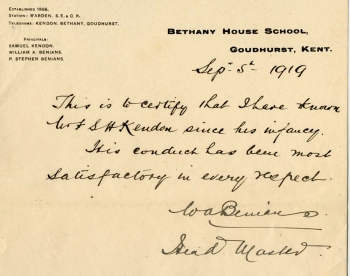 ESTABLISHED 1866.
STATION: MARDEN, S.E. & C.R.
TELEGRAMS: KENDON, BETHANY, GOUDHURST.
PRINCIPALS:
SAMUEL KENDON.
WILLIAM A. BENIANS.
P. STEPHEN BENIANS.
BETHANY HOUSE SCHOOL,
GOUDHURST, KENT.
Sept. 5th 1919
This is to certify that I have known
Mr F S H Kendon since his infancy.
His conduct has been most
satisfactory in every respect.
W A Benians.
Head Master